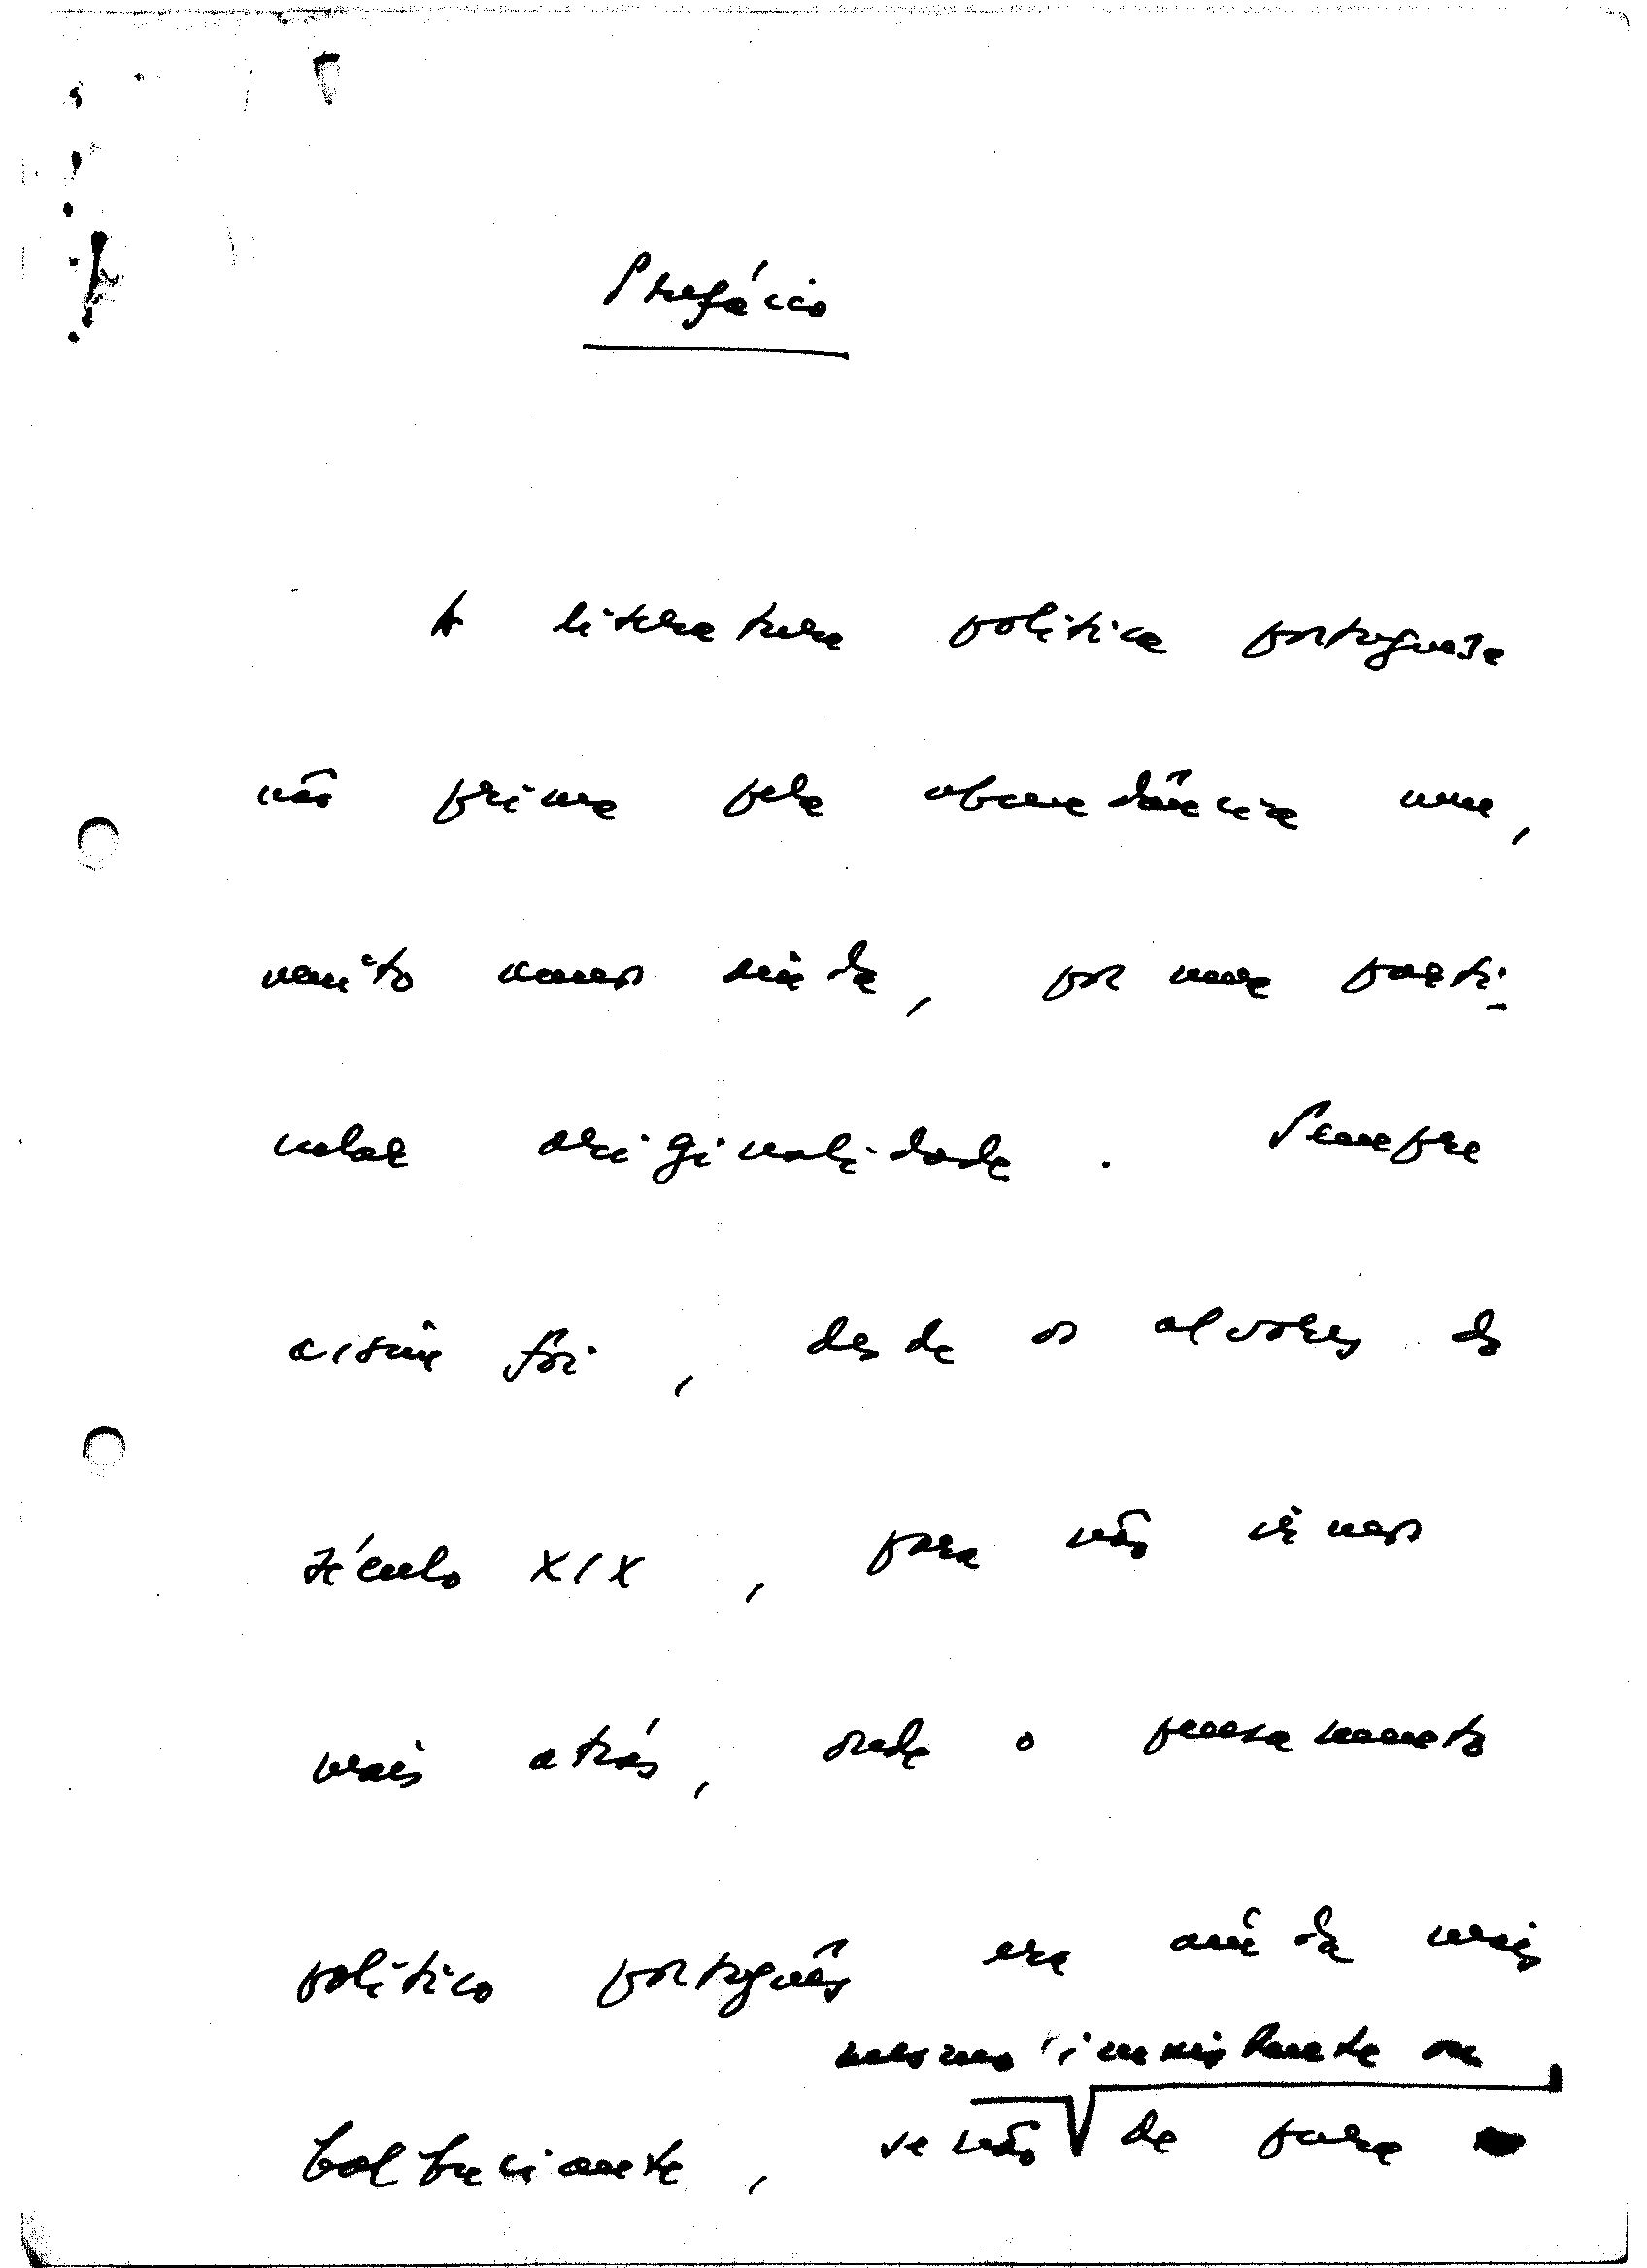 Prefácio
A literatura política portuguesa
não prima pela abundância nem,
muito menos ainda, por uma parti-
cular originalidade. Sempre
assim foi, desde os alvores do
século XIX, para não irmos
mais atrás, onde o pensamento
político português era ainda mais
mesmo inexistente ou
balbuciante, se não de pura